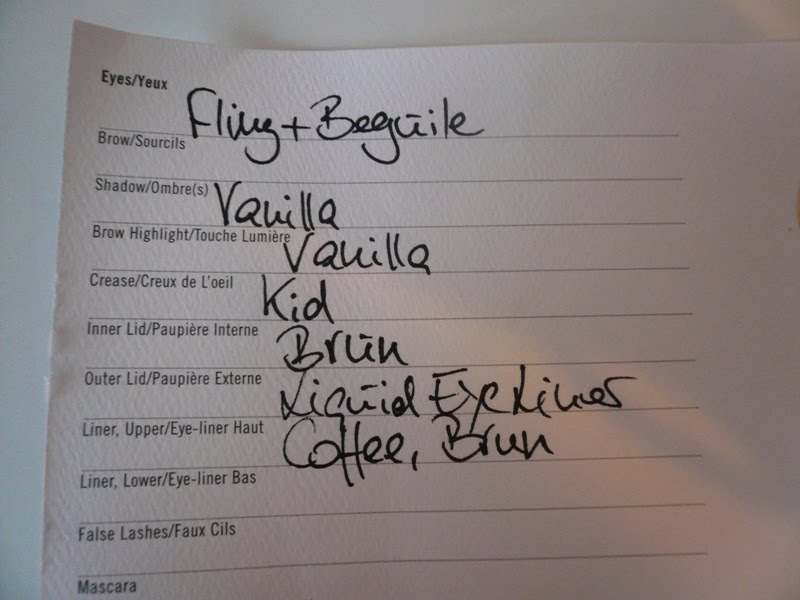 Eyes/Yeux
Fling + Beguile
Brow/Sourcils
Shadow/Ombre(s) Vanilla
Brow Highlight/Touche Lumière Vanilla
Crease/Creux de L'oeil Kid
Inner Lid/Paupière Interne Brun
Outer Lid/Paupière Externe Liquid Eye Liner
Liner, Upper/Eye-liner Haut Coffee, Brun
Liner, Lower/Eye-liner Bas
False Lashes/Faux Cils
Mascara